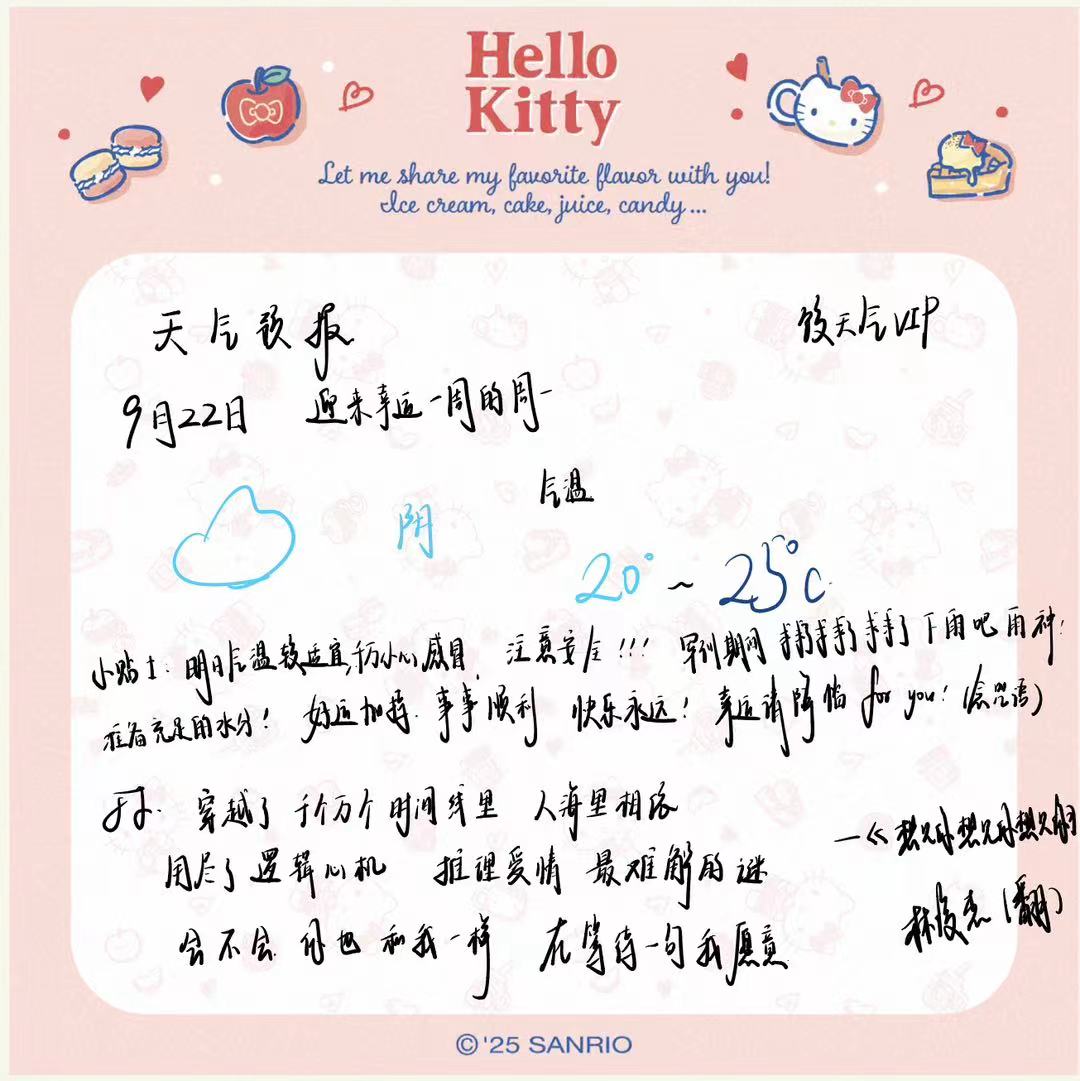 Hello
Kitty
Let me share my favorite flavor with you!
Ice cream, cake, juice, candy...
天气预报
天气VIP
9月22日 迎来幸运一周的周一
气温
阴
20° ~ 25°C
小贴士:明日气温较适宜,千万小心感冒,注意安全!!! 军训期间 下雨吧雨神!
准备充足的水分! 好运加持.事事顺利 快乐永远! 幸运请降临 for you!(念咒语)
穿越了 千个万个时间线里 人海里相依
用尽了逻辑心机 推理爱情 最难解的谜
会不会 你也和我一样 在等待一句我愿意
—《想见你想见你想见你》
林俊杰(翻)
©'25 SANRIO